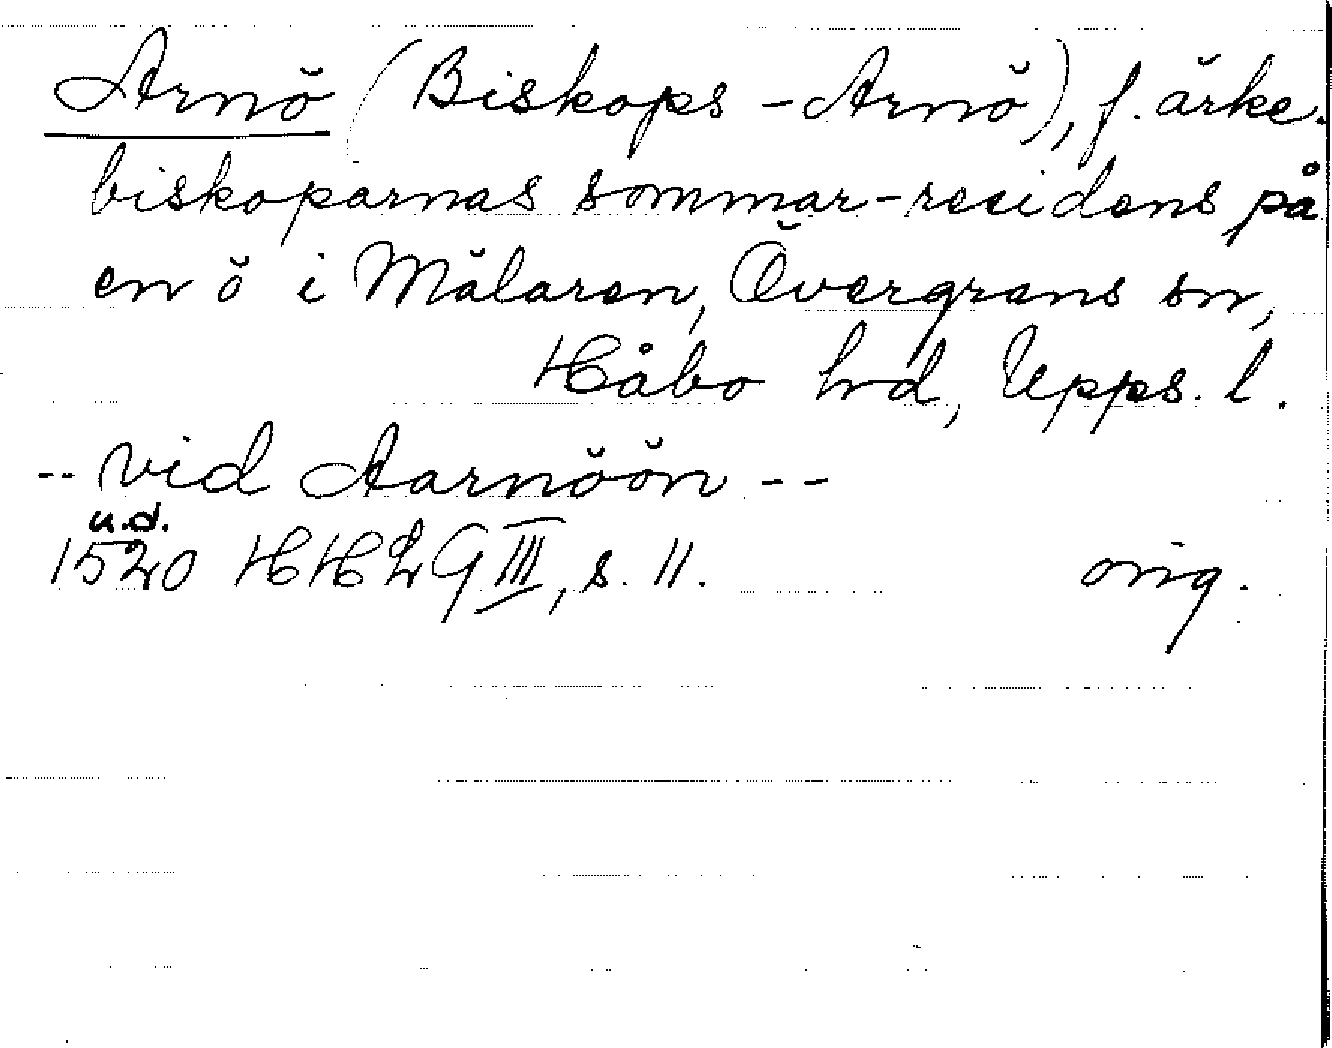 Arnö (Biskops-Arnö), f. ärke-
biskoparnas sommar-residens på
en ö i Mälaren, Övergrans sn,
Håbo hd, Upps. l.
-- vid Aarnöön --
u.d.
1520 HHLG III, s. 11. orig.